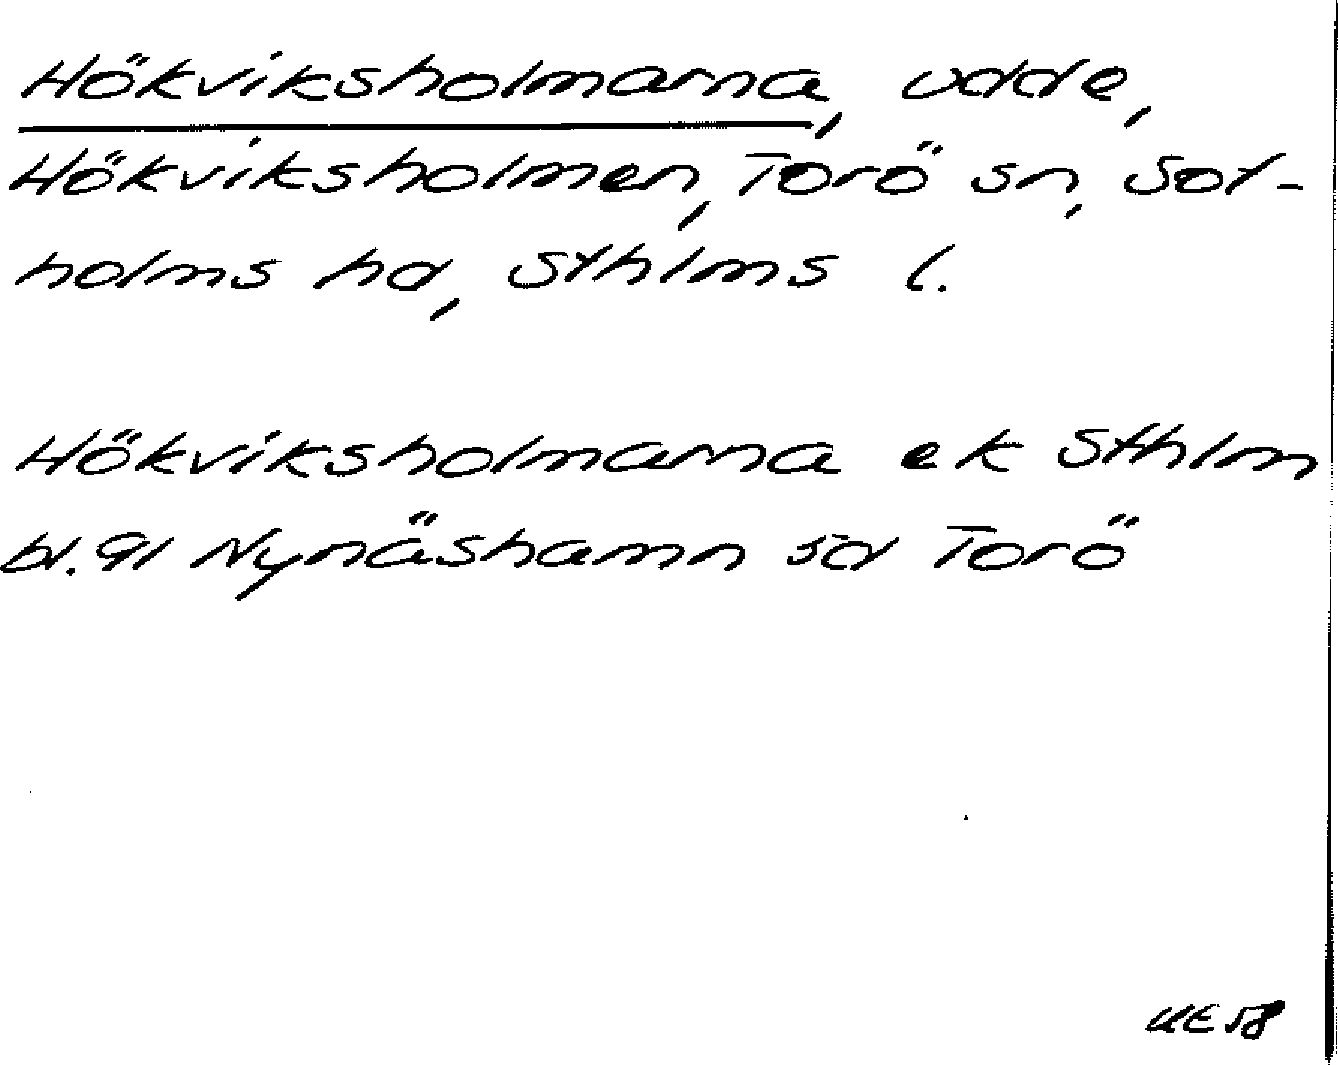 Hökviksholmarna, udde,
Hökviksholmen, Torö sn, Sot-
holms hd, Sthlms l.
Hökviksholmarna ek Sthlm
bl. 91 Nynäshamn sd Torö
KE 58